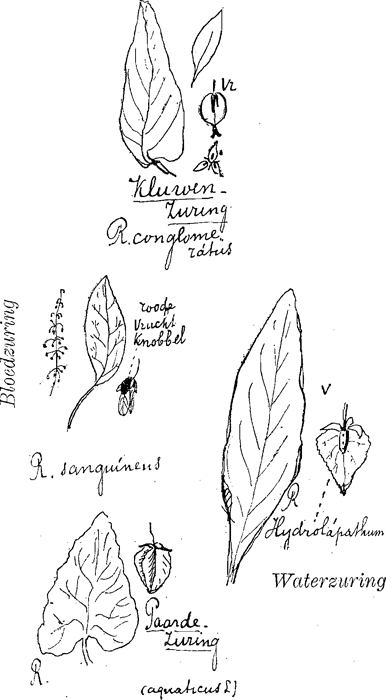 Vr
Kluwen-
Zuring
R. conglome-
rátus
Bloedzuring
roode
Vrucht
Knobbel
R. sanguíneus
V
R
Hydrolápathum
Waterzuring
Paarde-
Zuring
R.
(aquaticus L)